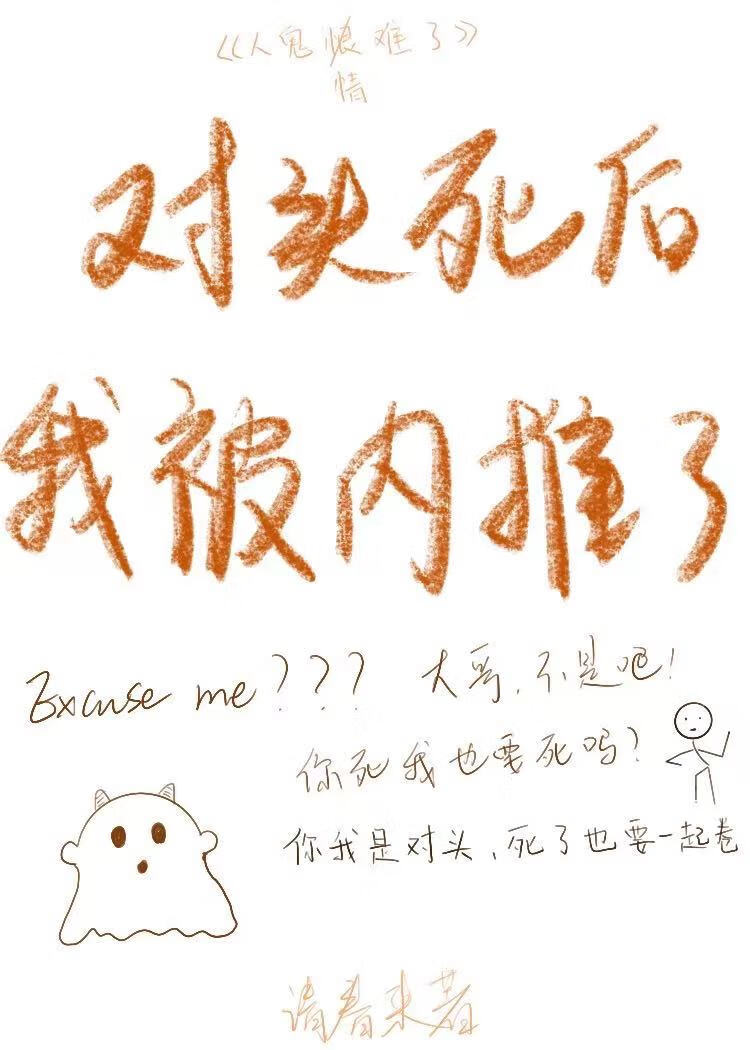 《人鬼恨难了》
情
对头死后
我被内推了
Excuse me???
大哥,不是吧!
你死我也要死吗?
你我是对头、死了也要一起卷
请看来着